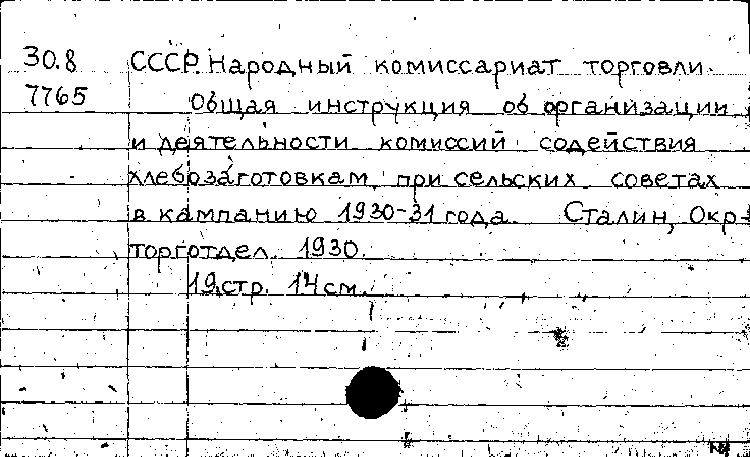 30.8 СССР. Народный комиссариат торговли.
7765 Общая инструкция об организации
и деятельности комиссий содействия
хлебозаготовкам при сельских советах
в кампанию 1930-31 года. Сталин, Окр-
торготдел. 1930.
19 стр. 14 см.